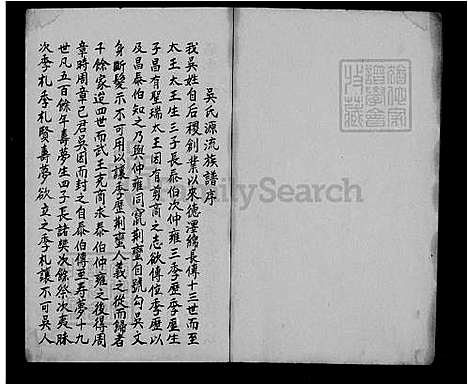 吳氏源流族譜序
我吳姓自后稷創業以來德澤綿長傳十三世而至
太王太王生三子長泰伯次仲雍三季歷季歷生
子昌有聖瑞太王因有剪商之志欲傳位季歷以
及昌泰伯知之乃與仲雍同竄荆蠻自號勾吳文
身斷髮示不可用以讓季歷荆蠻人義之從而歸者
千餘家迨四世而武王克商求泰伯仲雍之後得周
章時周章已君吳因而封之自泰伯傳至壽夢十九
世凡五百餘年壽夢生四子長諸樊次餘祭次夷昧
次季札季札賢壽夢欲立之季札讓不可吳人
FamilySearch